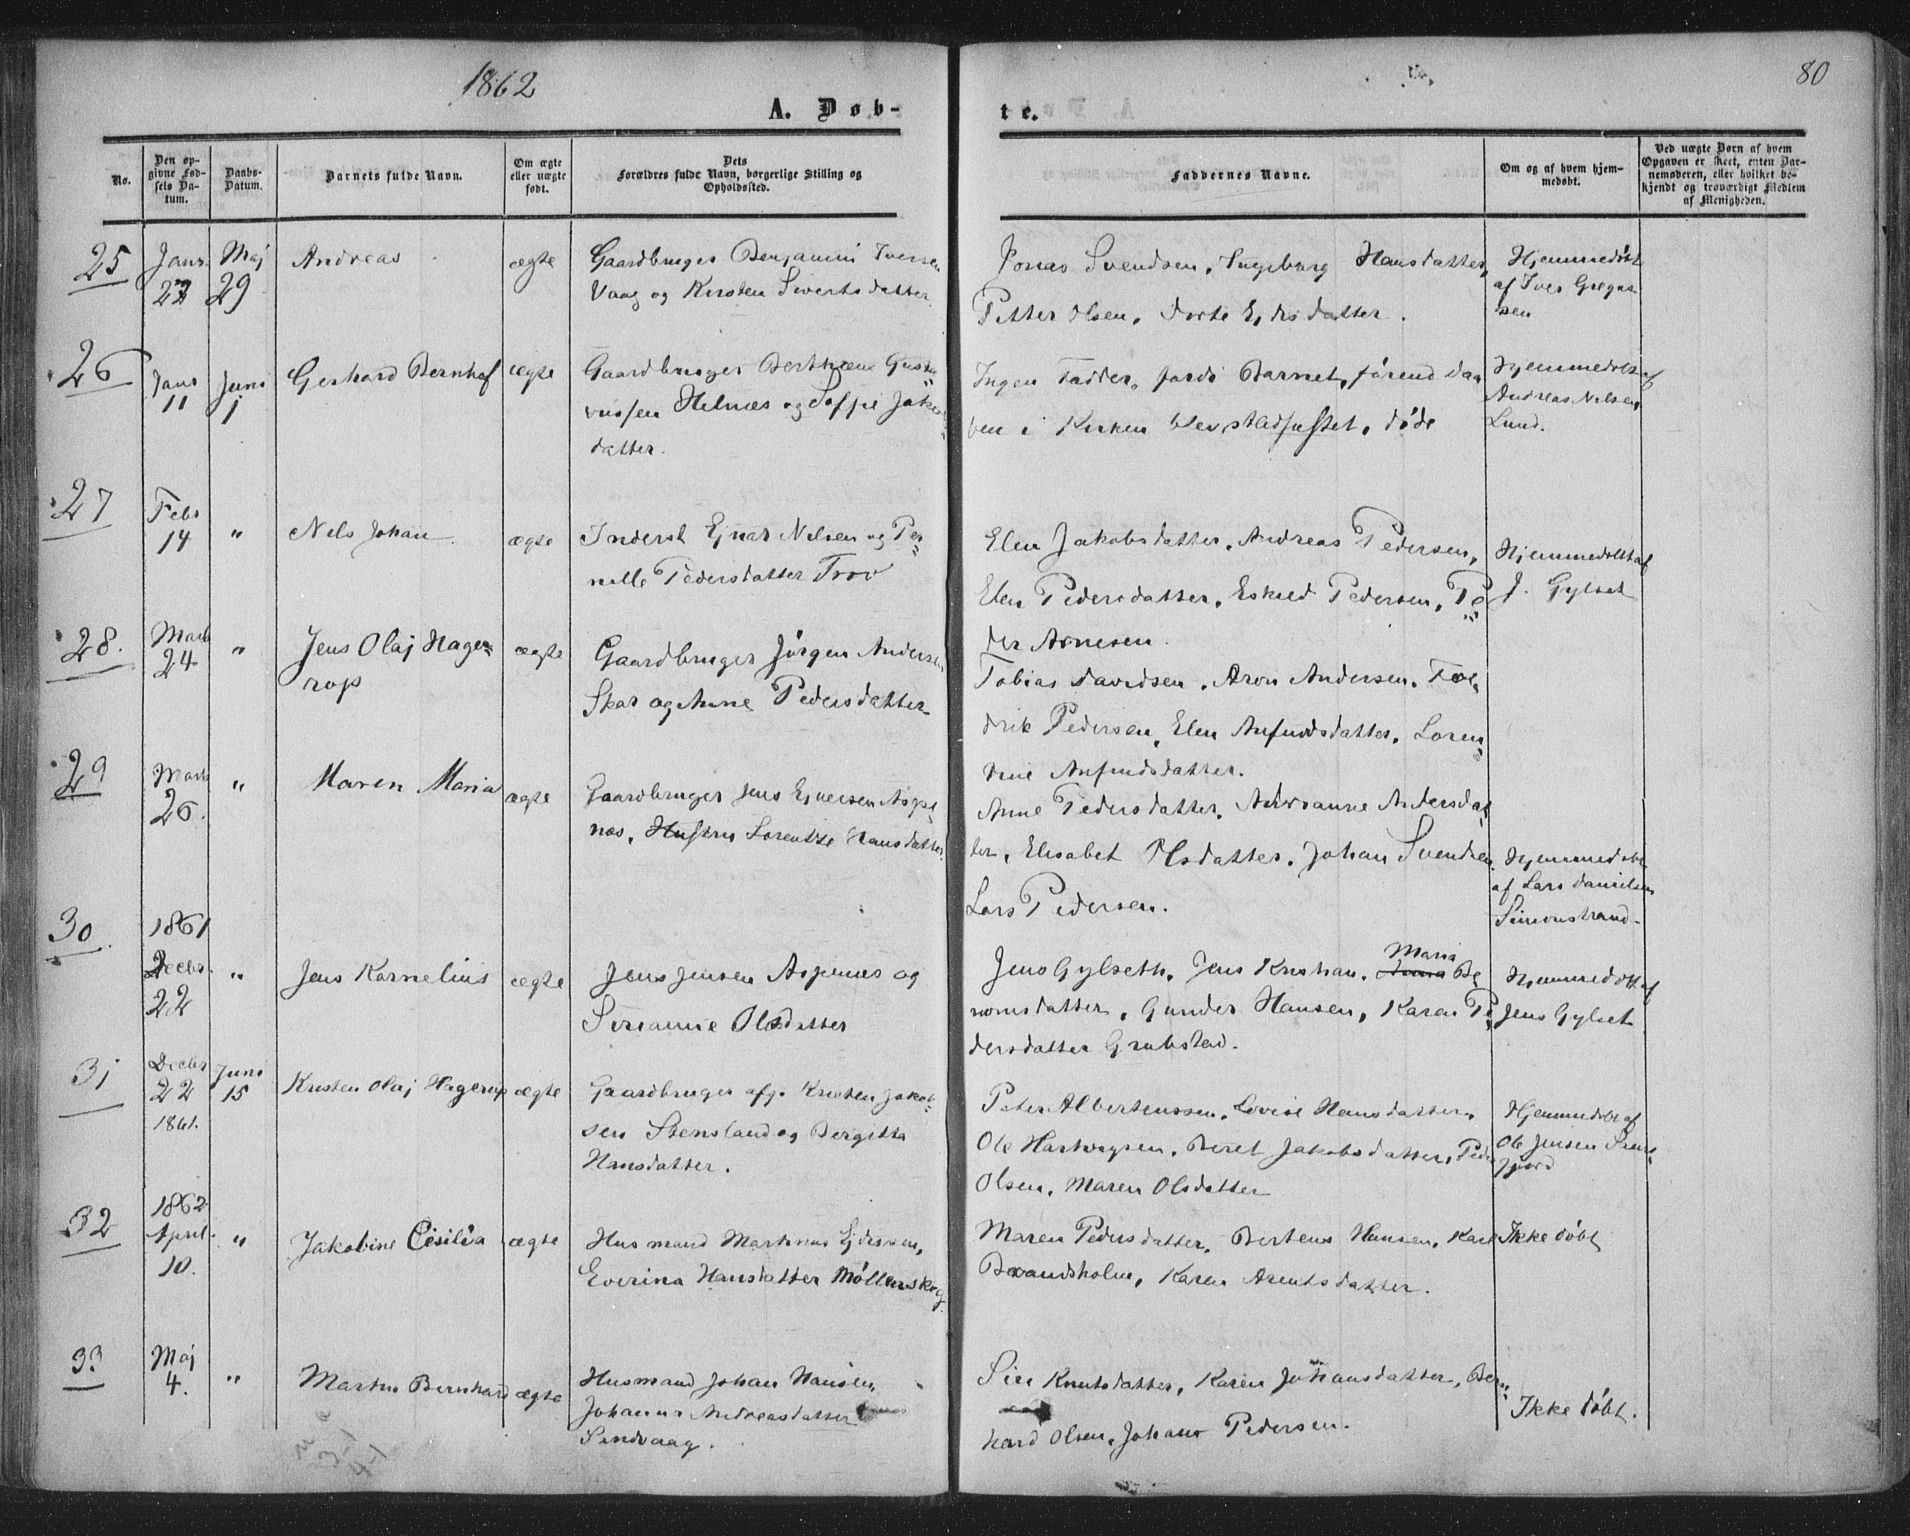 1862
80
A. Døb-
te.
No.
Den op-
givne Fød-
sels Da-
tum.
Daabs-
Datum.
Barnets fulde Navn.
Om ægte
eller uægte
født.
Dets
Forældres fulde Navn, borgerlige Stilling og
Opholdssted.
Faddernes Navne.
Om og af hvem hjem-
medøbt.
Ved uægte Børn af hvem
Opgaven er skeet, enten Bar-
nemoderen, eller hvilket be-
kjendt og troværdigt Medlem
af Menigheden.
25
Janr
Maj
29
Andreas
ægte
Gaardbruger Benjamin Iversen
Vaag og Kirsten Sivertsdatter
Jonas Svendsen, Ingeborg Hansdatter,
Petter Olsen, Dorte Ejdsdatter.
Hjemmedøbt
af Iver Gregus
sen
26
Janr
11
Juni
1
Gerhard Bernhof
ægte
Gaardbruger Berthæus Gusta
vussen Helnæs og Soffie Jakobs
datter.
Ingen Fadder, fordi Barnet, førend Daa
ben i Kirken blev stadfæstet, døde
Hjemmedøbt af
Andreas Nilsen
Lund.
27
Febr
14
"
Nels Johan
ægte
Inderst Ejnar Nelsen og Per
nille Pedersdatter Trov
Elen Jakobsdatter, Andreas Pedersen,
Elen Pedersdatter, Eskild Pedersen, Pe
der Arnesen.
Hjemmedøbt af
J. Gylset
28.
Marts
24
"
Jens Olaj Hage-
rop
ægte
Gaardbruger Jørgen Andersen
Skar og Anne Pedersdatter
Tobias Davidsen, Aron Andersen, Fre-
drik Pedersen, Elen Anfindsdatter, Loren
dine Anfindsdatter.
29
Marts
26.
"
Maren Maria
ægte
Gaardbruger Jens Ejnersen Aspe
næs, Hustru Lorentze Hansdatter.
Anne Pedersdatter, Adrianne Andersdat
ter, Elisabet Olsdatter, Johan Svendsen
Lars Pedersen.
Hjemmedøbt
af Lars Danielsen
Simonstrand.
30.
1861
Decbr.
22
"
Jens Kornelius
ægte
Jens Jensen Aspenæs og
Sirianne Olsdatter
Maria
Jens Gylseth, Jens Kristian, Be
nomsdatter, Gunder Hansen, Karen Pe
dersdatter Grubstad.
Hjemmedøbt af
Jens Gylset
31
Decbr
22
1861.
Juni
15
Kristen Olaj Hagerup
ægte
Gaardbruger afg. Kristen Jakob-
sen Stensland og Bergitta
Hansdatter.
Peter Albertenssen, Lovise Hansdatter,
Ole Hartvigsen, Beret Jakobsdatter, Peder
Olsen, Maren Olsdatter
Hjemmedøbt af
Ole Jensen
fjord
32
1862
April
10.
"
Jakobine Cisilia
ægte
Husmand Martinus Ejdissen,
Everina Hansdatter Møllerskog
Maren Pedersdatter, Bertens Hansen, Karl
Brandsholm, Karen Arentsdatter.
Ikke døbt
33
Maj
4.
"
Martin Bernhard
ægte
Husmand Johan Hansen,
Johanna Andreasdatter
Sandvaag.
Siri Knutsdatter, Karen Johansdatter, Bern
hard Olsen, Johan Pedersen.
Ikke døbt.
3-1
4-1